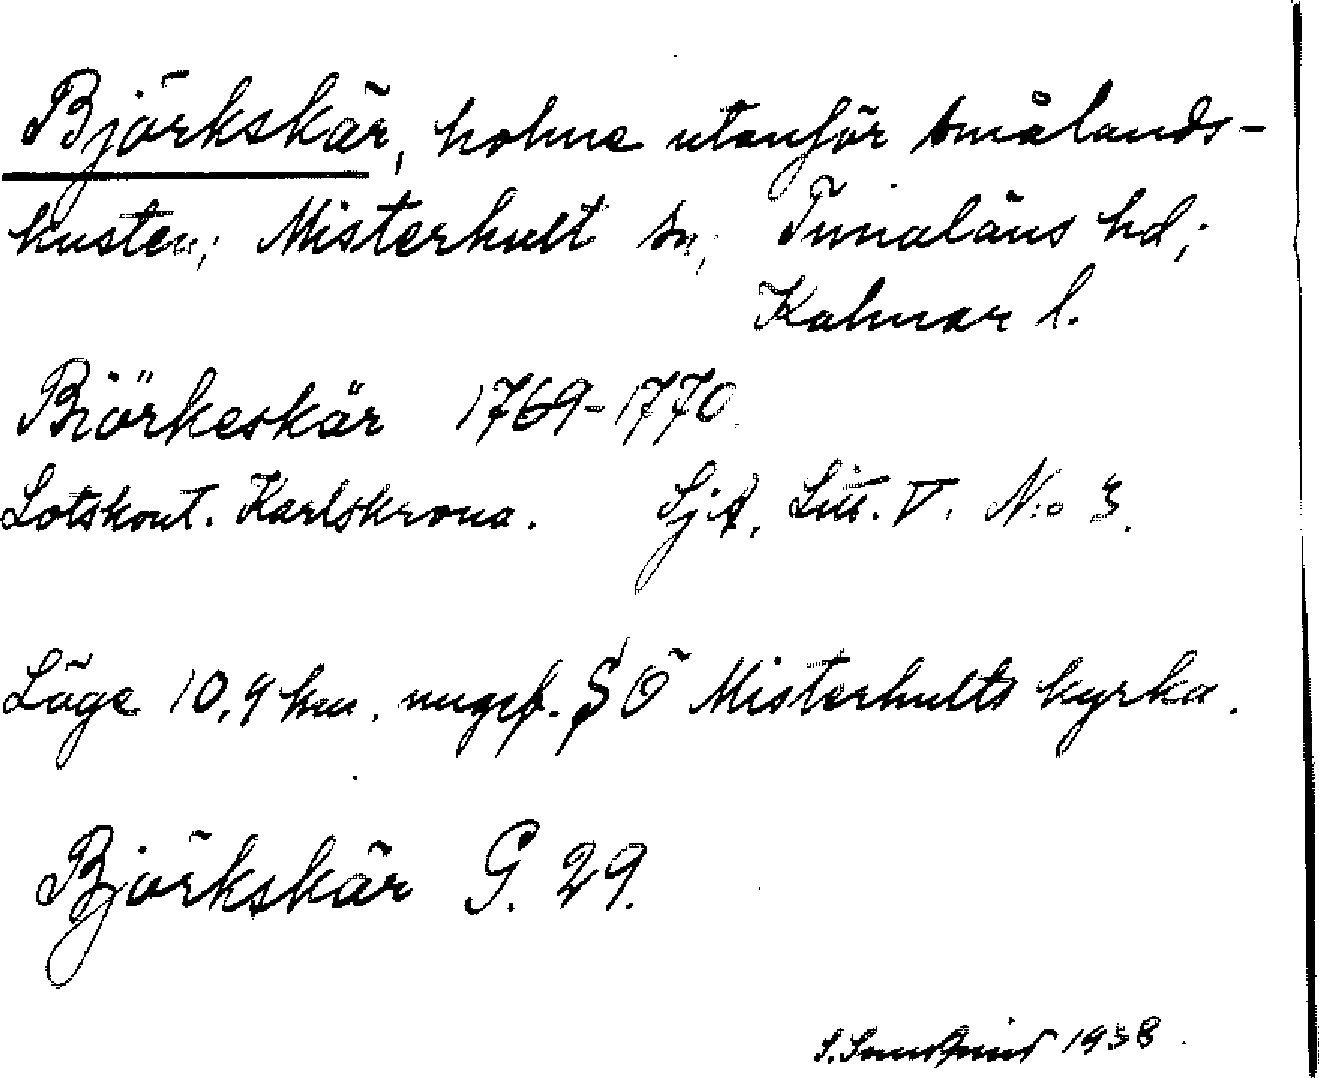 Björkskär, holme utanför Smålands-
kusten; Misterhult sn; Tunaläns hd;
Kalmar l.
Biörkeskär 1769-1770.
Lotskont. Karlskrona. SjA. Litt. V. N:o 3.
Läge 10,9 km. ungef. SÖ Misterhults kyrka.
Björkskär G. 29.
S. 1938.